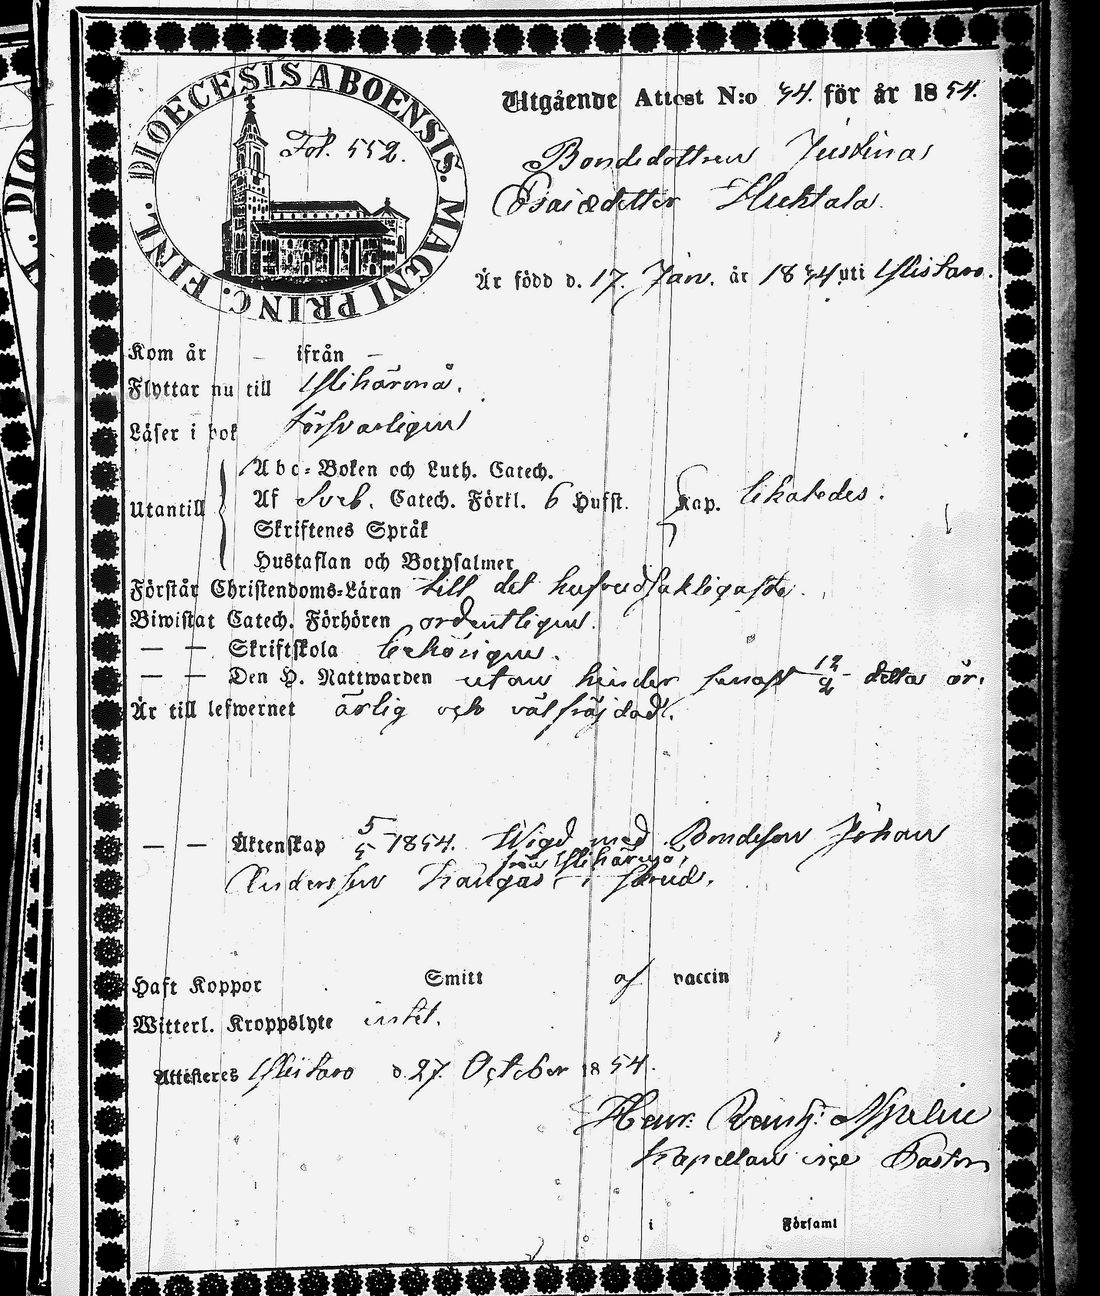 DIOECESIS ABOENSIS. MAGNI PRINC. FINL.
Fol. 552.
Utgående Attest N:o 44. för år 1854.
Bondedottren Justina
Esaiædotter
Är född d. 17. Jan. år 1834. uti Ylistaro.
Kom år – ifrån –
Flyttar nu till Ylihärmä.
Läser i bok försvarligen
Utantill
Abc-Boken och Luth. Catech.
Af Sveb. Catech. Förkl. 6 Hufst. Kap.
Skriftenes Språk
Hustaflan och Botpsalmer
Förstår Christendoms-Läran till det hufvudsakligaste.
Biwistat Catech. Förhören ordentligen.
— — Skriftskola behörigen.
— — Den H. Nattwarden utan hinder senast 12/2 detta år.
Är till lefwernet ärlig och välfrejdad.
— — Äktenskap 1854. Wigd med Bondeson Johan
från Ylihärmä,
Andersson Kangas i
Haft Koppor Smitt af vaccin
Witterl. Kroppslyte intet.
Attesteres Ylistaro d. 27 October 1854.
Henr.
Kapellan vice Pastor
i Församl